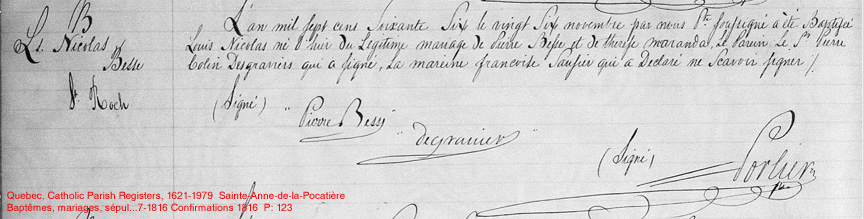 B
Ls. Nicolas
Besse
St. Roch
L'an mil sept cens Soixante Six le vingt Six novembre par nous Ptre Soussigné a été Baptisé
Louis Nicolas né d'hier du Légitime mariage de Pierre Besse et de therese maranda, Le Parein Le Sr Pierre
Colin Desgraviers qui a signé, La mareine francoise Saufier qui a Declaré ne Scavoir signer /.
(Signé) " Pierre Bessy
" degravier
(Signé)
Porlier
ptre
Quebec, Catholic Parish Registers, 1621-1979 Sainte-Anne-de-la-Pocatière
Baptêmes, mariages, sépul...7-1816 Confirmations 1816 P. 123